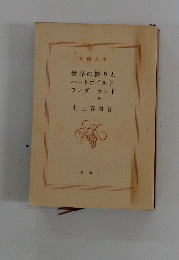 新潮文庫
世界の終りと
ハードボイルド
ワンダーランド
村上春樹著